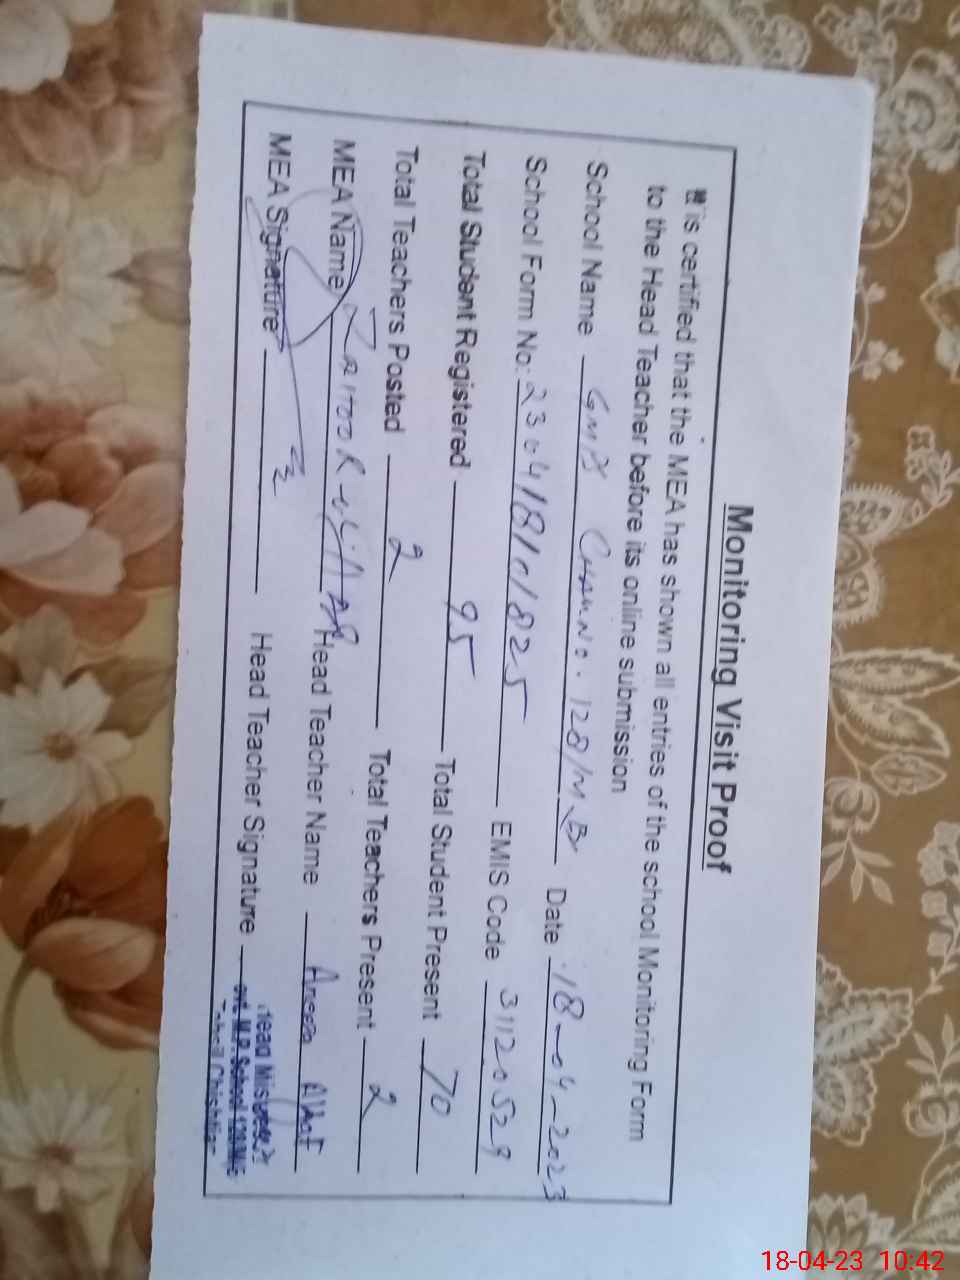 Monitoring Visit Proof
It is certified that the MEA has shown all entries of the school Monitoring Form
to the Head Teacher before its online submission
School Name GMPS Chak No. 128/MB Date 18-04-2023
School Form No: 230418101825 EMIS Code 31120529
Total Student Registered 95 Total Student Present 70
Total Teachers Posted 2 Total Teachers Present 2
MEA Name Head Teacher Name
MEA Signature Head Teacher Signature
Head Mistress
Govt. M.P. School 128/MB
Tehsil Chishtian
18-04-23 10:42